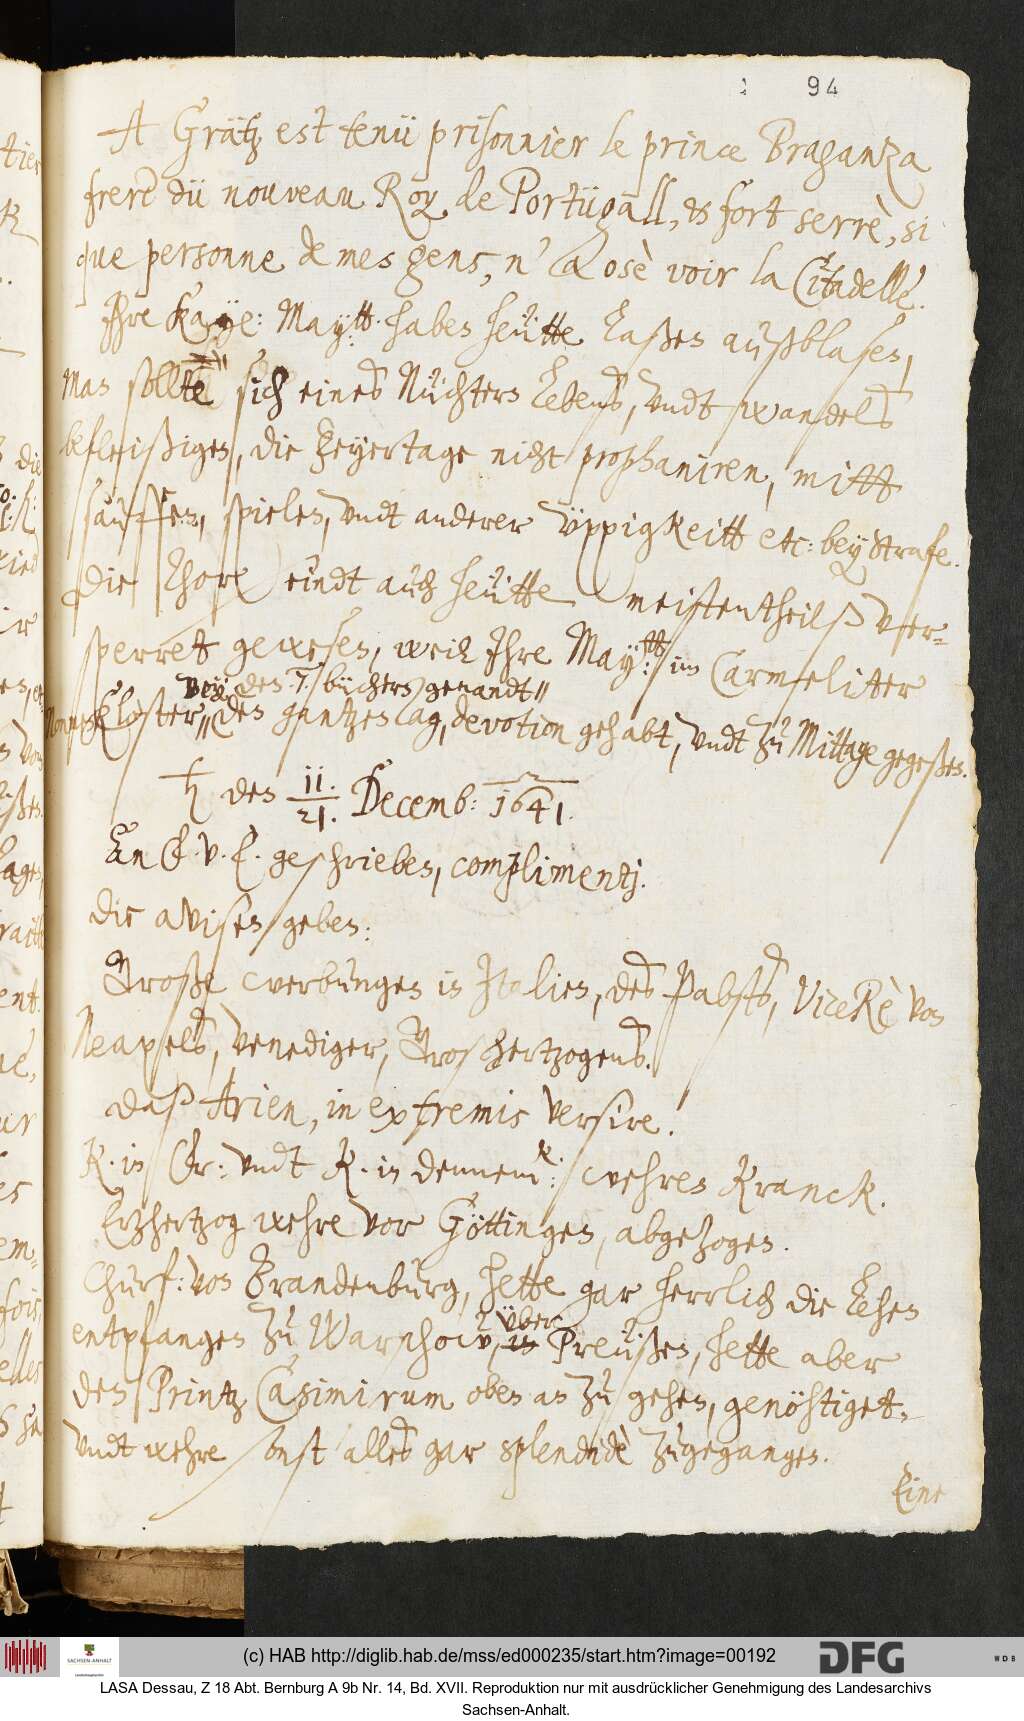 94
A Grätz est tenü prisonnier le prince Braganza
frere dü nouveau Roy de Portügall, & fort serrè, si
que personne de mes gens, n'a osè voir la Citadelle.
Ihre Kaye: Maytt: haben heütte laßen außblasen,
man sollte sich eines Nüchtern lebens, vndt wandels
befleißigen, die feyertage nicht prophaniren, mitt
sauffen, spielen, vndt anderer üppigkeitt etc: bey strafe.
Die Thore seindt auch heütte meistentheilß ver-
sperret gewesen, weil Ihre Maytt: im Carmeliter
bey den 7 büchern genandt
Nonnen Closter den gantzen Tag, devotion gehabt, vndt zu Mittage gegeßen.
♄ den 11. / 21. Decemb: 1641.
An C. v. E. geschrieben, complimentj.
Die avisen geben:
Große werbungen in Italien, des Pabsts, ViceRè von
Neapels, Venediger, Großhertzogens.
Daß Arien, in extremis versire.
K. in Fr: vndt K. in Dennemk: wehren Kranck.
Ertzhertzog wehre vor Göttingen, abgezogen.
Churf: von Brandenburg, hette gar herrlich die Lehen
entpfangen zu Warschow, über Preüßen, hette aber
den Printz Casimirum oben an zu gehen, genöhtiget,
vndt wehre sonst alles gar splendidè zugegangen.
Eine
(c) HAB http://diglib.hab.de/mss/ed000235/start.htm?image=00192
SACHSEN-ANHALT
DFG
WDB
LASA Dessau, Z 18 Abt. Bernburg A 9b Nr. 14, Bd. XVII. Reproduktion nur mit ausdrücklicher Genehmigung des Landesarchivs
Sachsen-Anhalt.